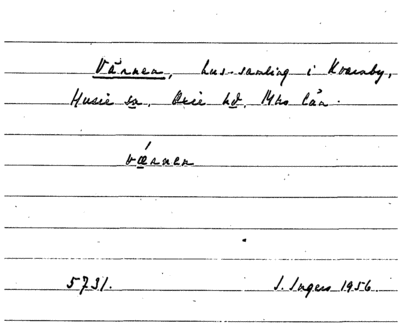 Värnen, hus-samling i Kvarnby,
Husie sn. Oxie hd. Mhs län.
vǽrnen
5731. I. Ingers 1956